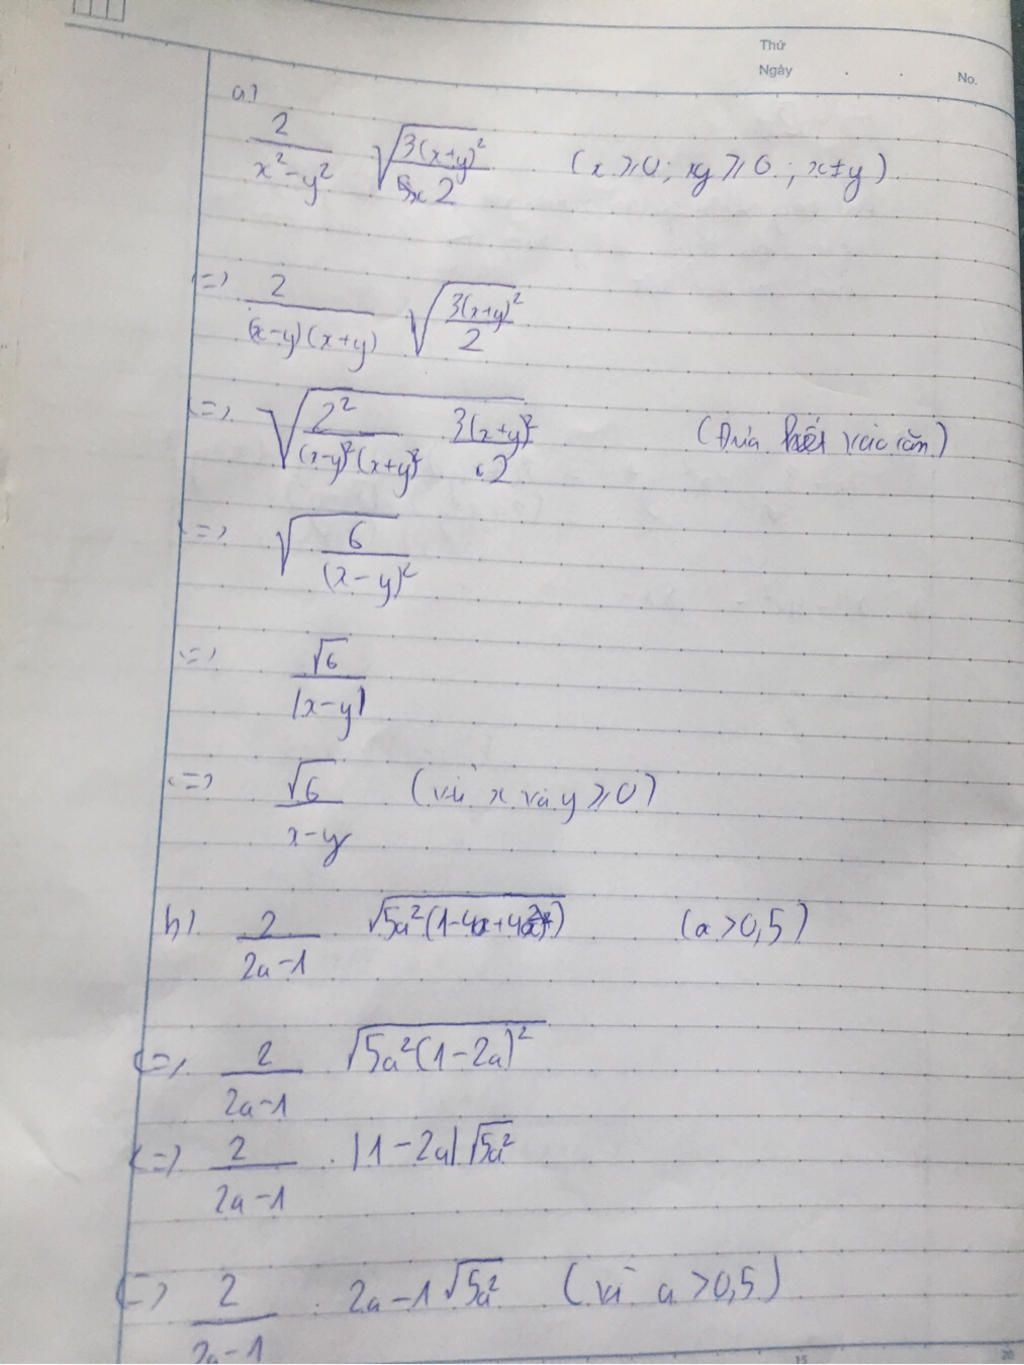 Thứ
Ngày . . No.
a)
2/(x²-y²) √(3(x+y)²/2) (x ⩾ 0; xy ⩾ 0; x≠y)
<=> 2/((x-y)(x+y)) √(3(x+y)²/2)
<=> √(2²/((x-y)²(x+y)²) 3(x+y)²/.2) (Đưa hết vào căn)
<=> √(6/(x-y)²)
<=> √6/|x-y|
<=> √6/(x-y) (vì x và y ⩾ 0)
b) 2/(2a-1) √(5a²(1-4a+4a²)) (a > 0,5)
<=> 2/(2a-1) √(5a²(1-2a)²)
<=> 2/(2a-1) . |1-2a| √(5a²)
<=> 2/(2a-1) . 2a-1 √(5a²) (vì a > 0,5)
15 20